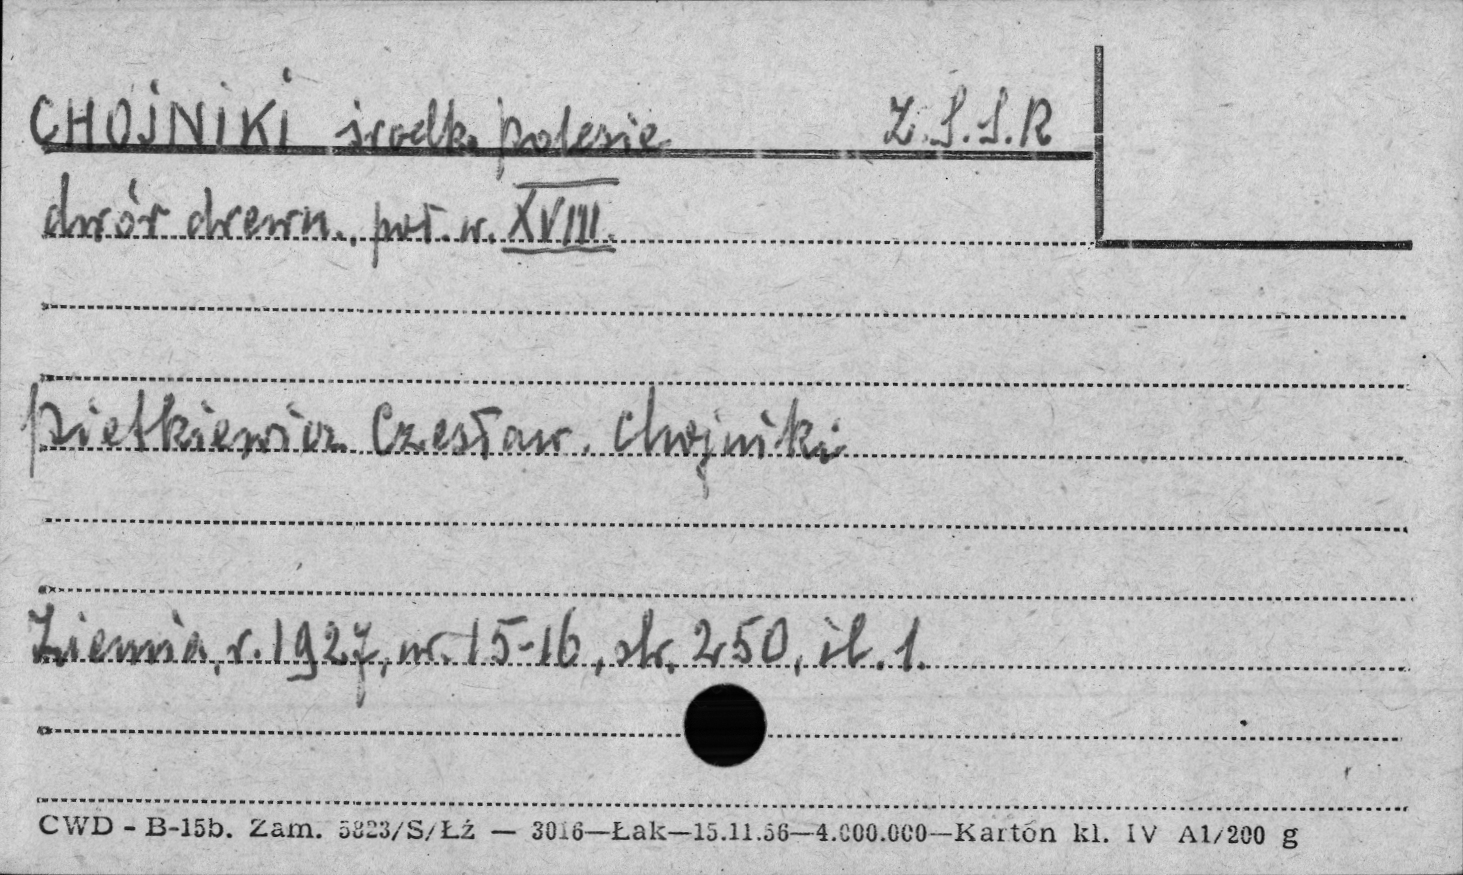 CHOJNIKI środk. polesie Z.S.S.R
dwór drewn., poł. w. XVIII.
Pietkiewicz Czesław. Chojniki
Ziemia, r. 1927, nr. 15-16, str. 250, il. 1.
CWD - B-15b. Zam. 5823/S/Łź — 3016—Łak—15.11.56—4.000.000—Karton kl. IV A1/200 g